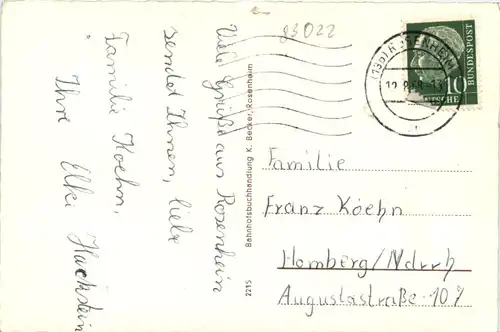 83022
Viele Grüße aus Rosenheim
sendet Ihnen, liebe
Familie Koehn,
Ihre Elki Hackstein
Bahnhofsbuchhandlung K. Becker, Rosenheim
2215
(13b) ROSENHEIM
12.8.58-13
DEUTSCHE BUNDESPOST
10
Familie
Franz Koehn
Homberg/Ndrrh
Augustastraße 107